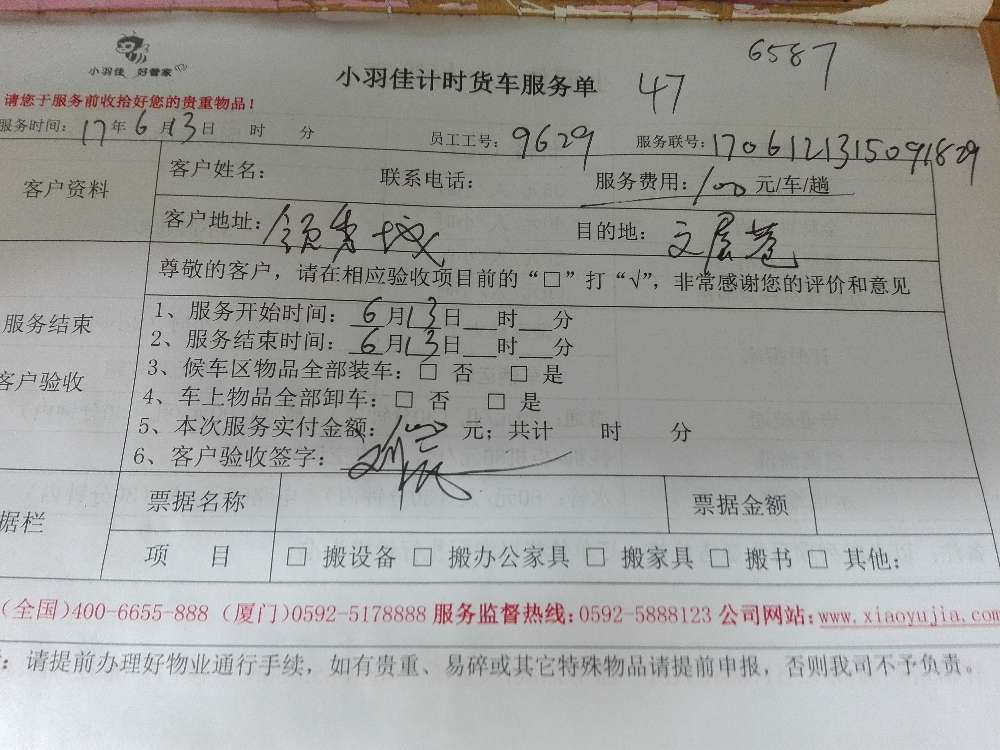 6587
小羽佳 好管家
小羽佳计时货车服务单 47
请您于服务前收拾好您的贵重物品！
服务时间：17年6月13日 时 分 员工工号：9629 服务联号：17061213150991829
客户资料
客户姓名： 联系电话： 服务费用：100元/车/趟
客户地址：领秀城 目的地：文屏巷
尊敬的客户，请在相应验收项目前的“□”打“√”，非常感谢您的评价和意见
服务结束
客户验收
1、服务开始时间：6月13日___时___分
2、服务结束时间：6月13日___时___分
3、候车区物品全部装车：□ 否 □ 是
4、车上物品全部卸车：□ 否 □ 是
5、本次服务实付金额：100元；共计 时 分
6、客户验收签字：
据栏
票据名称 票据金额
项 目 □ 搬设备 □ 搬办公家具 □ 搬家具 □ 搬书 □ 其他：
(全国)400-6655-888 (厦门)0592-5178888 服务监督热线：0592-5888123 公司网站：www.xiaoyujia.com
：请提前办理好物业通行手续，如有贵重、易碎或其它特殊物品请提前申报，否则我司不予负责。